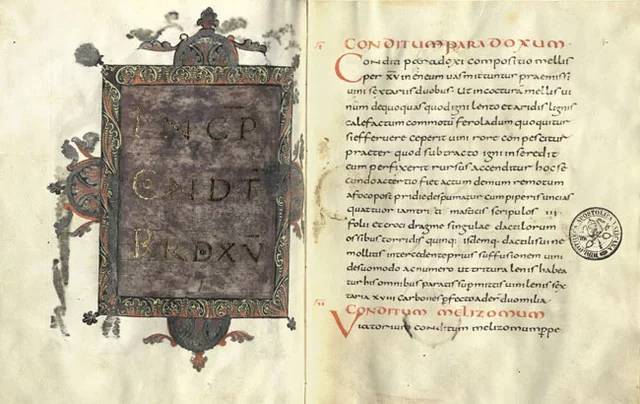 INC̄P
CONDT̄
BRDXV̄
CONDITUM PARADOXUM
Conditi paradoxi compositio mellis
per xv in eneum vas mittuntur praemissi
vini sextariis duobus ut in coctura mellis vi
num dequoquas quod igni lento et aridis lignis
calefactum commotu ferola dum quoquitur
si effervere ceperit vini rore conpescitur
praeter quod subtracto igni in se redit
cum perfixerit rursus accenditur hoc se
cundo ac tertio fiet ac tum demum remotum
a foco post pridie despumatur cum piperis uncias
quattuor iam triti masticis scripulos iii
folii et croci dragme singulae dactilorum
ossibus torridis quinq; isdemq; dactilis vi ne
mollitis intercedente prius suffusionem vini
de suo modo ac numero ut tritura lenis habea
tur his omnibus paratis supmittis vini lenis sex
taria xviii carbones pfecto aderduo milia
CONDITUM MELIZOMUM
Viatorium conditum melizomum ppe